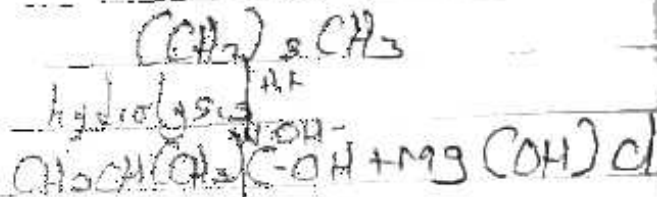 (CH2)3CH3
hydrolysis H+
OH-
CH3CH(CH3)C-OH + Mg(OH)Cl